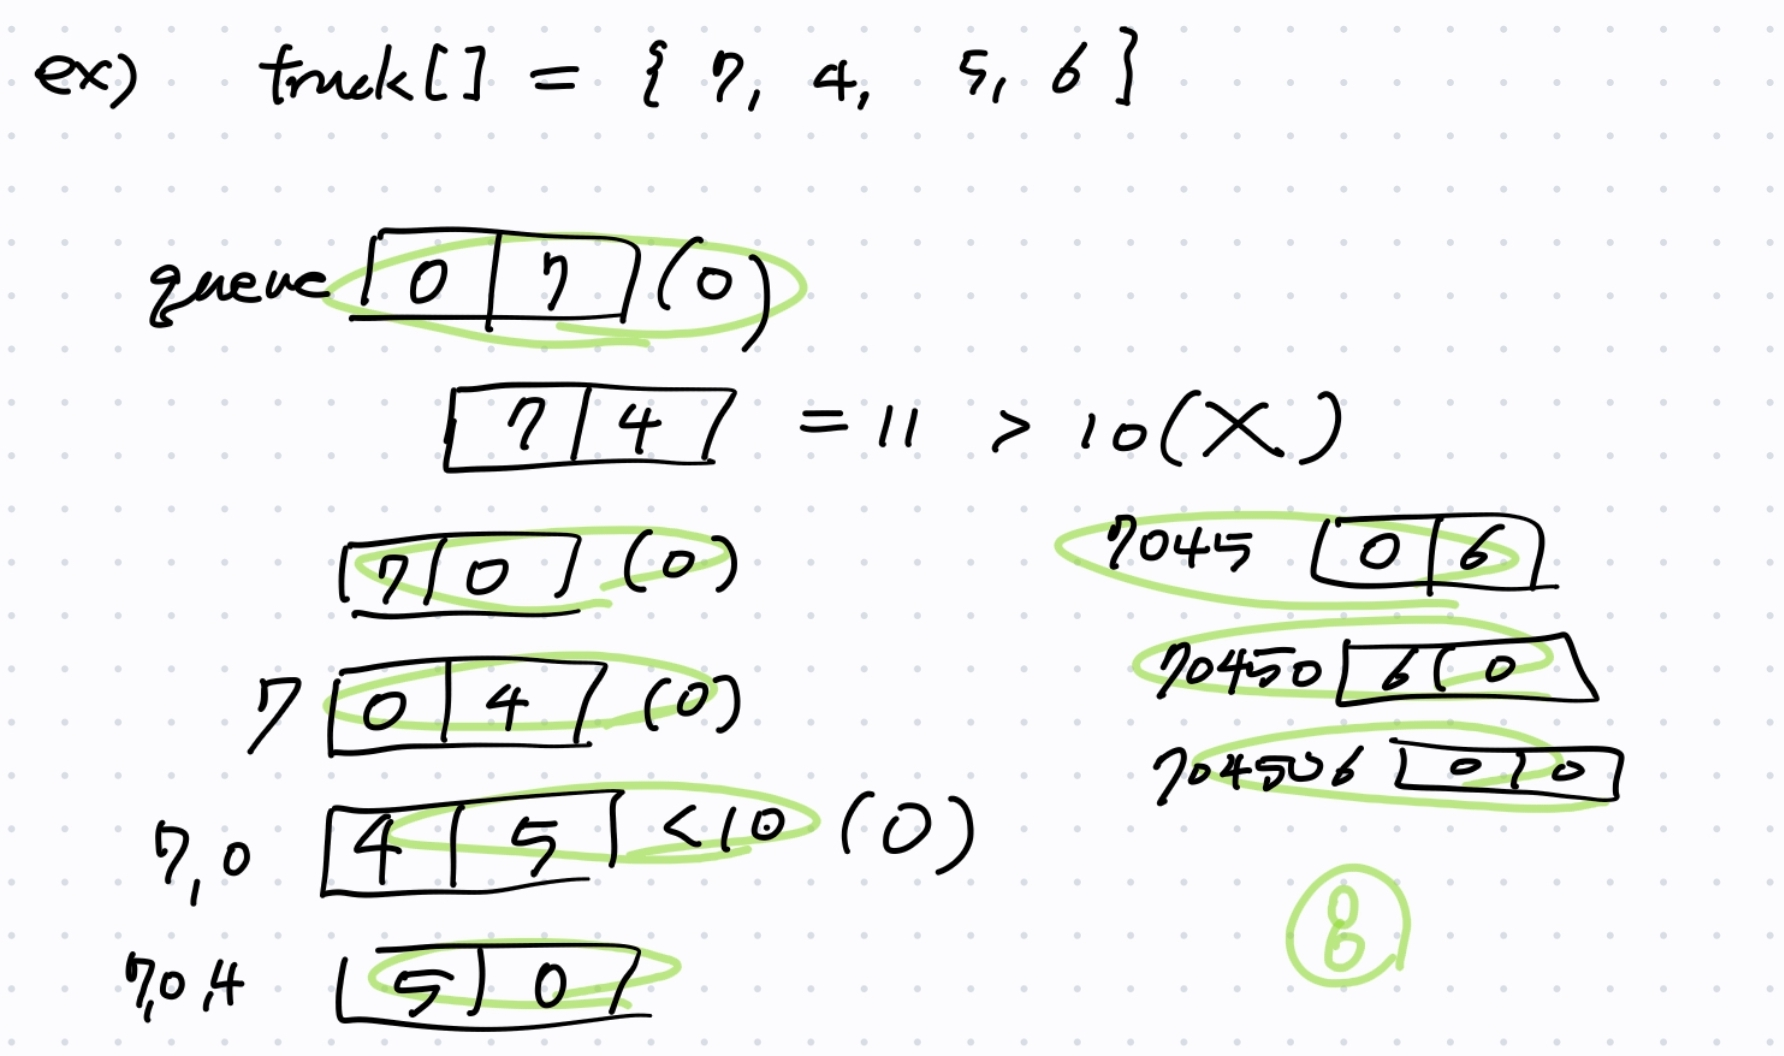 ex) truck[] = { 7, 4, 5, 6 }
queue 0 7 (0)
7 4 = 11 > 10 (X)
7 0 (0)
7 0 4 (0)
7,0 4 5 <10 (0)
7,0,4 5 0
7045 0 6
70450 6 0
704506 0 0
8